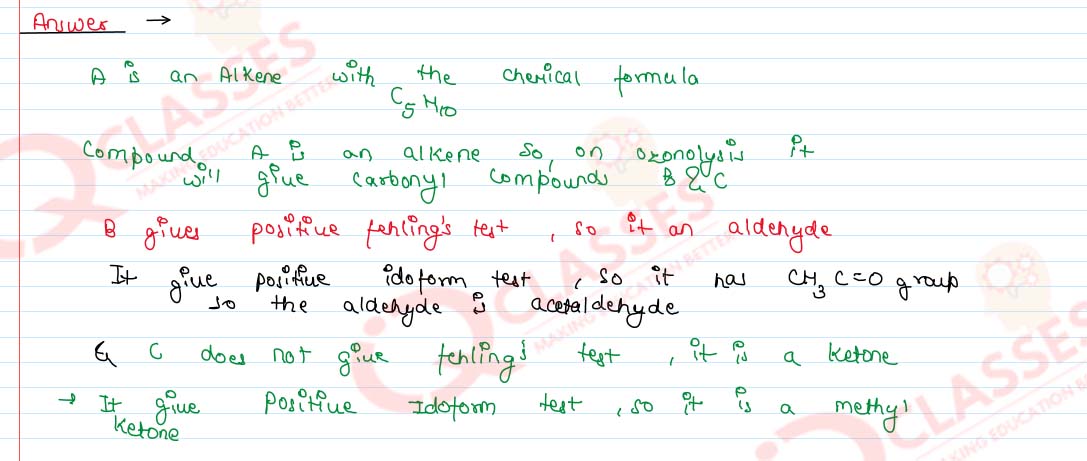 Answer →
A is an Alkene with the chemical formula
C5H10
Compound A is an alkene so, on ozonolysis it
will give carbonyl compounds B & C
B gives positive fehling's test, so it an aldehyde
It give positive idoform test, so it has CH3C=O group
so the aldehyde is acetaldehyde
& C does not give fehling's test, it is a ketone
→ It give positive Idoform test, so it is a methyl
ketone
CLASSES
MAKING EDUCATION BETTER
CLASSES
MAKING EDUCATION BETTER
CLASSES
MAKING EDUCATION BETTER